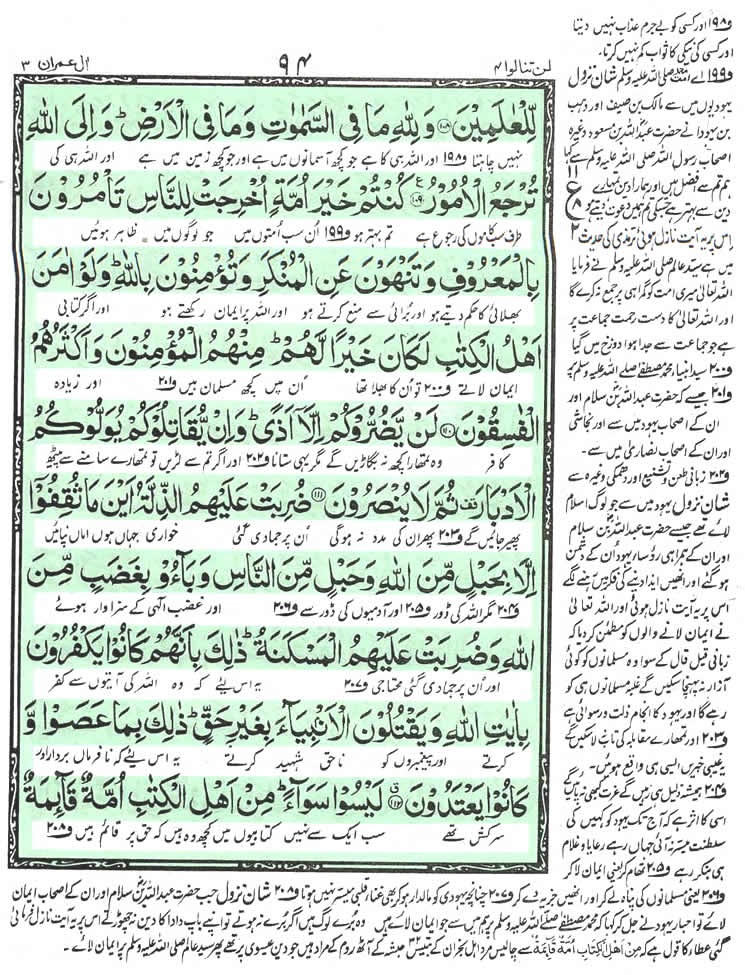 لن تنالوا ۴ ۹۴ اٰل عمران ۳
لِّلْعٰلَمِیْنَ۝۱۰۸ وَلِلّٰهِ مَا فِی السَّمٰوٰتِ وَمَا فِی الْاَرْضِؕ وَاِلَی اللّٰهِ
نہیں چاہتا ف۱۹۸ اور اللہ ہی کا ہے جو کچھ آسمانوں میں ہے اور جو کچھ زمین میں ہے اور اللہ ہی کی
تُرْجَعُ الْاُمُوْرُ۝۱۰۹ كُنْتُمْ خَیْرَ اُمَّةٍ اُخْرِجَتْ لِلنَّاسِ تَاْمُرُوْنَ
طرف سب کاموں کی رجوع ہے تم بہتر ہو ف۱۹۹ اُن سب اُمتوں میں جو لوگوں میں ظاہر ہوئیں
بِالْمَعْرُوْفِ وَتَنْهَوْنَ عَنِ الْمُنْكَرِ وَتُؤْمِنُوْنَ بِاللّٰهِؕ وَلَوْ اٰمَنَ
بھلائی کا حکم دیتے ہو اور بُرائی سے منع کرتے ہو اور اللہ پر ایمان رکھتے ہو اور اگر کتابی
اَهْلُ الْكِتٰبِ لَكَانَ خَیْرًا لَّهُمْؕ مِنْهُمُ الْمُؤْمِنُوْنَ وَاَكْثَرُهُمُ
ایمان لاتے ف۲۰۰ تو اُن کا بھلا تھا اُن میں کچھ مسلمان ہیں ف۲۰۱ اور زیادہ
الْفٰسِقُوْنَ۝۱۱۰ لَنْ یَّضُرُّوْكُمْ اِلَّاۤ اَذًیؕ وَاِنْ یُّقَاتِلُوْكُمْ یُوَلُّوْكُمُ
کافر وہ تمھارا کچھ نہ بگاڑیں گے مگر یہی ستانا ف۲۰۲ اور اگر تم سے لڑیں تو تمھارے سامنے سے پیٹھ
الْاَدْبَارَ۫ ثُمَّ لَا یُنْصَرُوْنَ۝۱۱۱ ضُرِبَتْ عَلَیْهِمُ الذِّلَّةُ اَیْنَ مَا ثُقِفُوْۤا
پھیر جائیں گے ف۲۰۳ پھر ان کی مدد نہ ہوگی اُن پر جمادی گئی خواری جہاں ہوں اماں نہ پائیں
اِلَّا بِحَبْلٍ مِّنَ اللّٰهِ وَحَبْلٍ مِّنَ النَّاسِ وَبَآءُوْ بِغَضَبٍ مِّنَ
ف۲۰۴ مگر اللہ کی ڈور ف۲۰۵ اور آدمیوں کی ڈور سے ف۲۰۶ اور غضب الٰہی کے سزاوار ہوئے
اللّٰهِ وَضُرِبَتْ عَلَیْهِمُ الْمَسْكَنَةُؕ ذٰلِكَ بِاَنَّهُمْ كَانُوْا یَكْفُرُوْنَ
اور اُن پر جمادی گئی محتاجی ف۲۰۷ یہ اس لیے کہ وہ اللہ کی آیتوں سے کفر
بِاٰیٰتِ اللّٰهِ وَیَقْتُلُوْنَ الْاَنْۢبِیَآءَ بِغَیْرِ حَقٍّؕ ذٰلِكَ بِمَا عَصَوْا وَّ
کرتے اور پیغمبروں کو ناحق شہید کرتے یہ اس لیے کہ نافرماں بردار اور
كَانُوْا یَعْتَدُوْنَ۝۱۱۲ لَیْسُوْا سَوَآءًؕ مِنْ اَهْلِ الْكِتٰبِ اُمَّةٌ قَآىِٕمَةٌ
سرکش تھے سب ایک سے نہیں کتابیوں میں کچھ وہ ہیں کہ حق پر قائم ہیں ف۲۰۸
ف۱۹۸ اور کسی کو بے جرم عذاب نہیں دیتا
اور کسی کی نیکی کا ثواب کم نہیں کرتا۔
ف۱۹۹ اے امت محمد صلی اللہ علیہ وسلم شان نزول
یہودیوں میں سے مالک بن صیف اور وہب
بن یہودا نے حضرت عبداللہ بن مسعود وغیرہ
اصحاب رسول اللہ صلی اللہ علیہ وسلم سے کہا
ہم تم سے افضل ہیں اور ہمارا دین تمہارے
دین سے بہتر ہے جسکی تم ہمیں دعوت دیتے ہو
اس پر یہ آیت نازل ہوئی ترمذی کی حدیث
میں ہے سید عالم صلی اللہ علیہ وسلم نے فرمایا
اللہ تعالیٰ میری امت کو گمراہی پر جمع نہ کرے گا
اور اللہ تعالیٰ کا دست رحمت جماعت پر
ہے جو جماعت سے جدا ہوا دوزخ میں گیا
ف۲۰۰ سید انبیاء محمد مصطفےٰ صلے اللہ علیہ وسلم پر
ف۲۰۱ جیسے کہ حضرت عبداللہ بن سلام اور
ان کے اصحاب یہود میں سے اور نجاشی
اور ان کے اصحاب نصاریٰ میں سے۔
ف۲۰۲ زبانی طعن و تشنیع اور دھمکی وغیرہ سے
شان نزول یہود میں سے جو لوگ اسلام
لائے تھے جیسے حضرت عبداللہ بن سلام
اور ان کے ہمراہی رؤسار یہود اُن کے دشمن
ہو گئے اور انھیں ایذا دینے کی فکر میں رہنے لگے
اس پر یہ آیت نازل ہوئی اور اللہ تعالیٰ
نے ایمان لانے والوں کو مطمئن کر دیا کہ
زبانی قیل قال کے سوا وہ مسلمانوں کو کوئی
آزار نہ پہنچا سکیں گے غلبہ مسلمانوں ہی کو
رہے گا اور یہود کا انجام ذلت و رسوائی ہے
ف۲۰۳ اور تمھارے مقابلہ کی تاب نہ لا سکیں گے
یہ غیبی خبریں ایسی ہی واقع ہوئیں۔
ف۲۰۴ ہمیشہ ذلیل ہی رہیں گے عزت کبھی نہ پائیں گے
اسی کا اثر ہے کہ آج تک یہود کو کہیں کی
سلطنت میسر نہ آئی جہاں رہے رعایا و غلام
ہی بنکر رہے ف۲۰۵ تھام کر یعنی ایمان لا کر
ف۲۰۶ یعنی مسلمانوں کی پناہ لے کر اور انھیں جزیہ دے کر ف۲۰۷ چنانچہ یہودی کو مالدار ہو کر بھی غناء قلبی میسر نہیں ہوتا ف۲۰۸ شان نزول جب حضرت عبداللہ بن سلام اور ان کے اصحاب ایمان
لائے تو احبار یہود نے جل کر کہا کہ محمد مصطفےٰ صلے اللہ علیہ وسلم پر ہم میں سے جو ایمان لائے ہیں وہ بُرے لوگ ہیں اگر بُرے نہ ہوتے تو اپنے باپ دادا کا دین نہ چھوڑتے اس پر یہ آیت نازل فرمائی
گئی عطا کا قول ہے کہ مِنْ اَهْلِ الْكِتَابِ اُمَّةٌ قَآئِمَةٌ سے چالیس مرد اہل نجران کے بتیس ۳۲ حبشہ کے آٹھ روم کے مراد ہیں جو دین عیسوی پر تھے پھر سید عالم صلی اللہ علیہ وسلم پر ایمان لائے۔